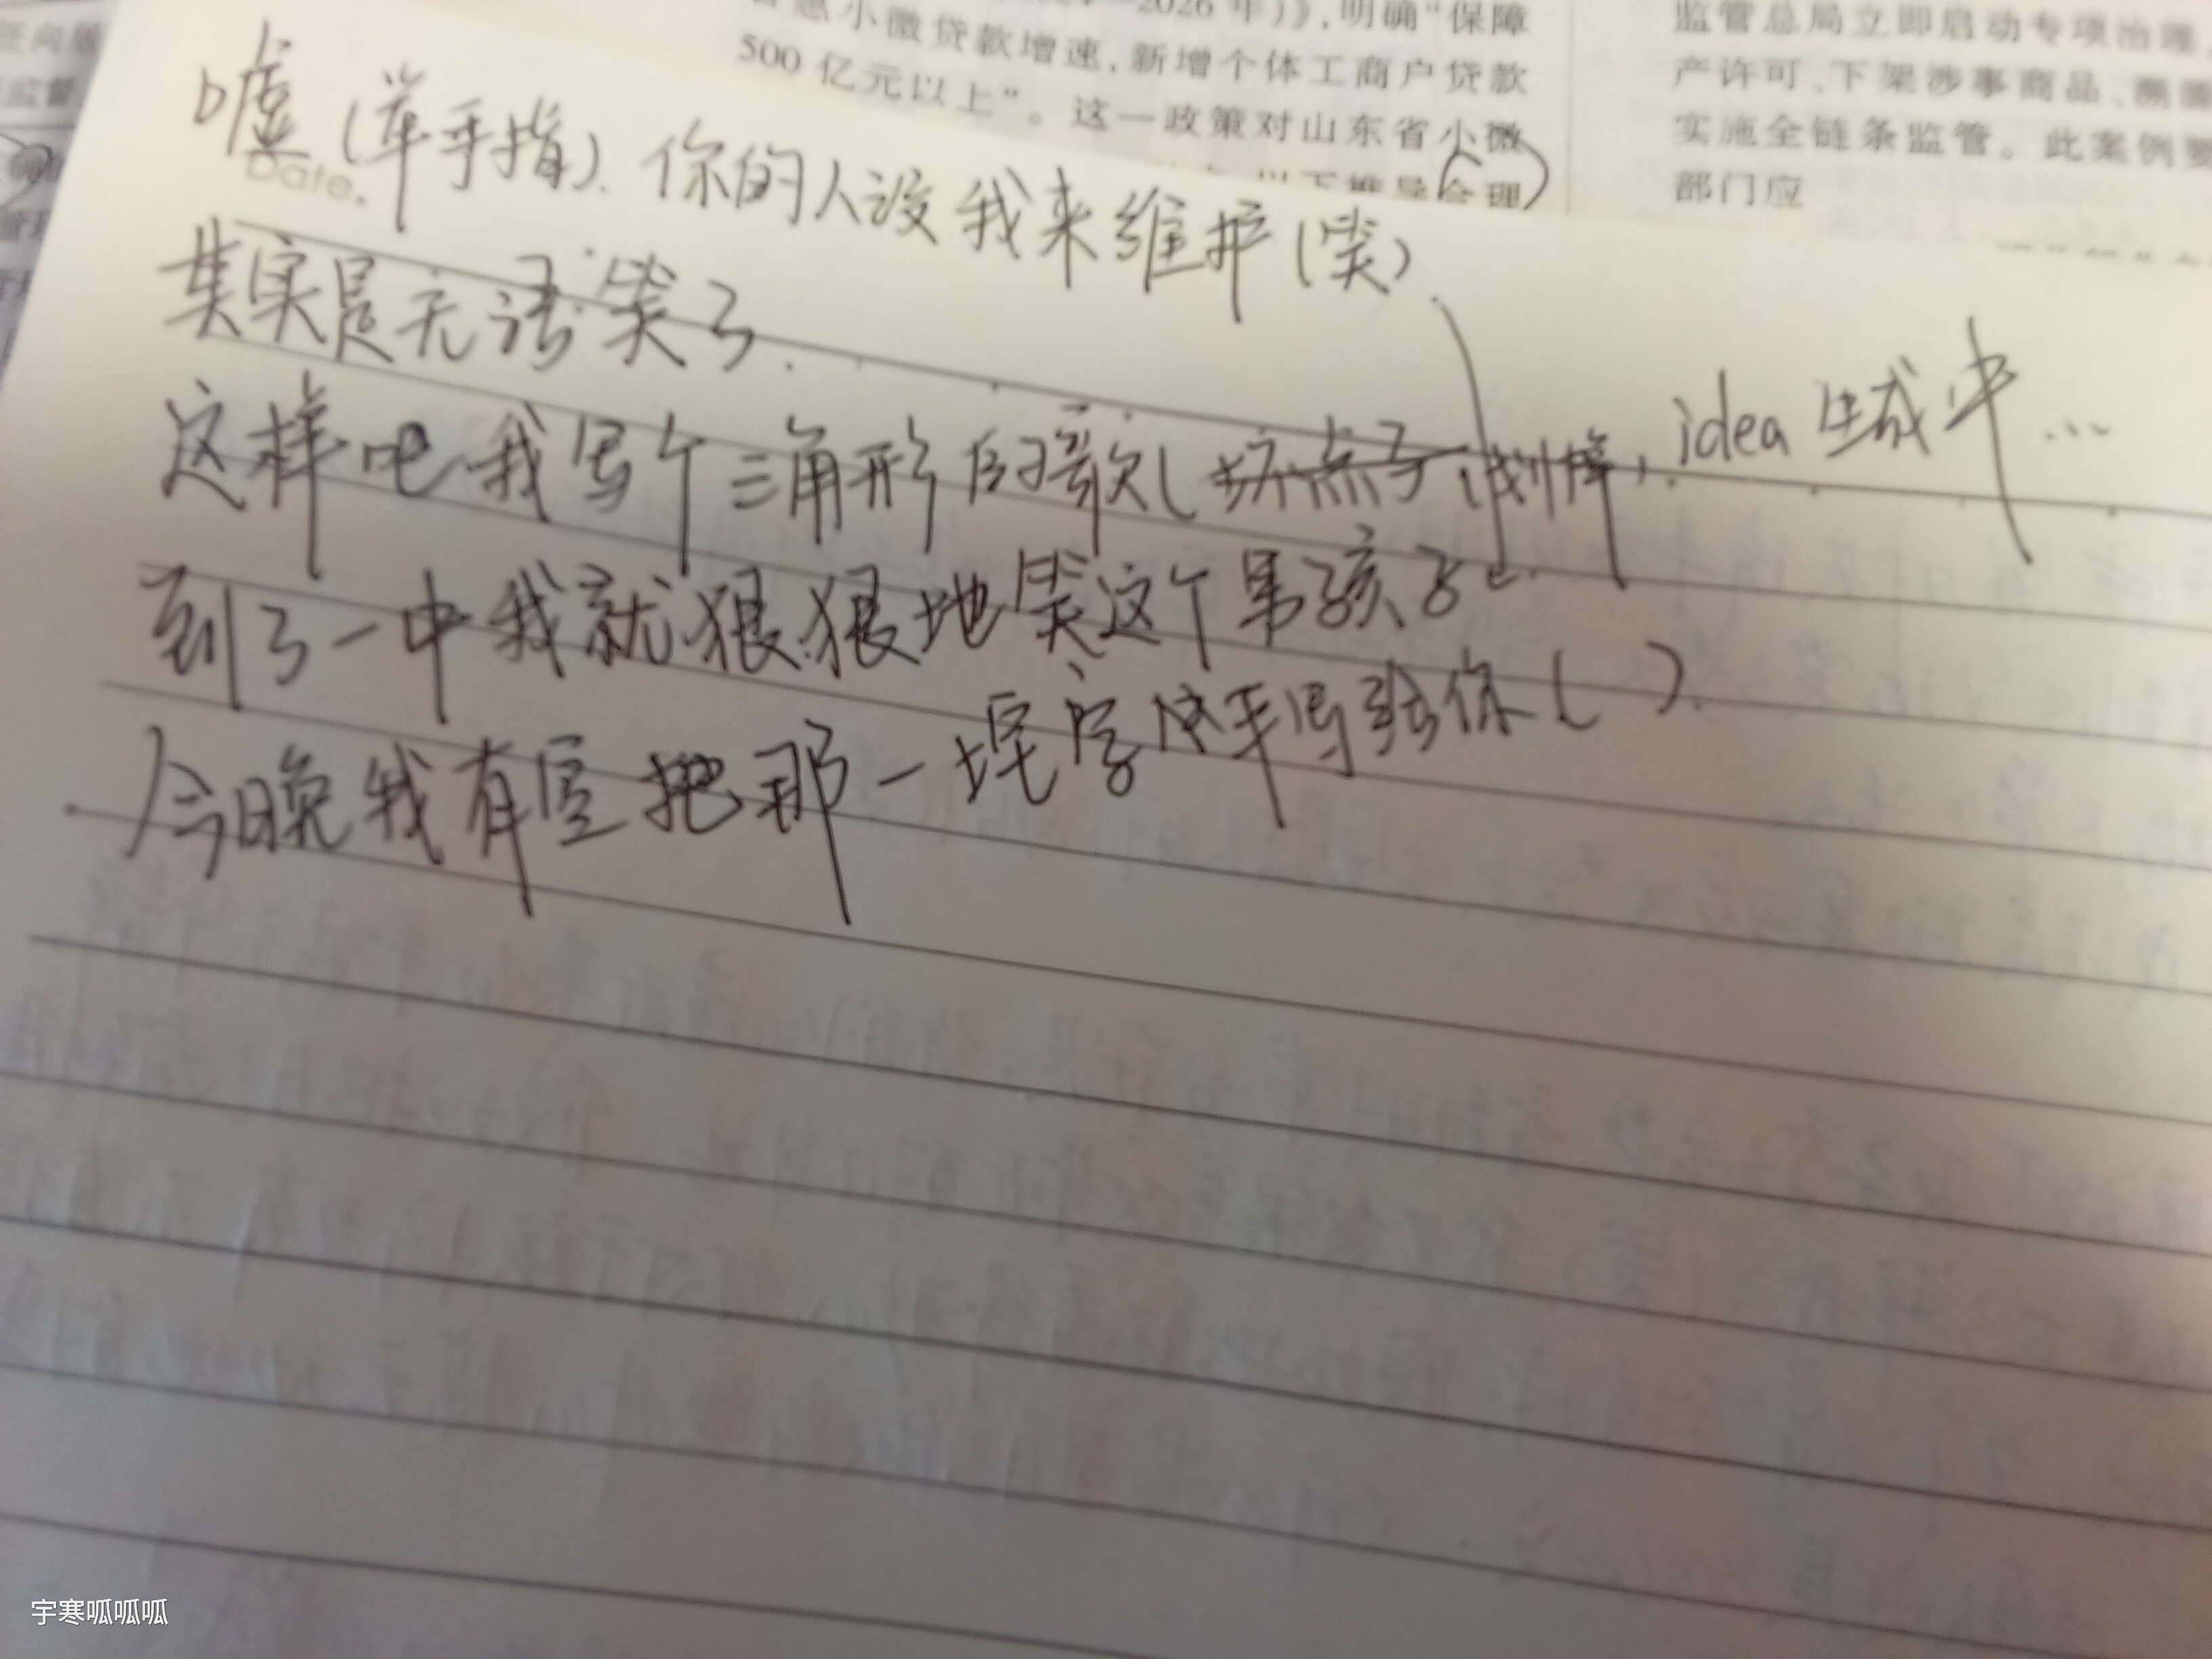 2026年)》,明确“保障
惠小微贷款增速,新增个体工商户贷款
500亿元以上”。这一政策对山东省小微
监管总局立即启动专项治理
产许可、下架涉事商品、溯
实施全链条监管。此案例要
部门应
Date.
嘘(竖手指).你的人设我来维护(笑).
其实是无语笑了.
这样吧我写个三角形的歌(坏点子(划掉),idea生成中...
到了一中我就狠狠地笑这个男孩子
今日晚我有空把那一坨字 写给你( ).
宇寒呱呱呱